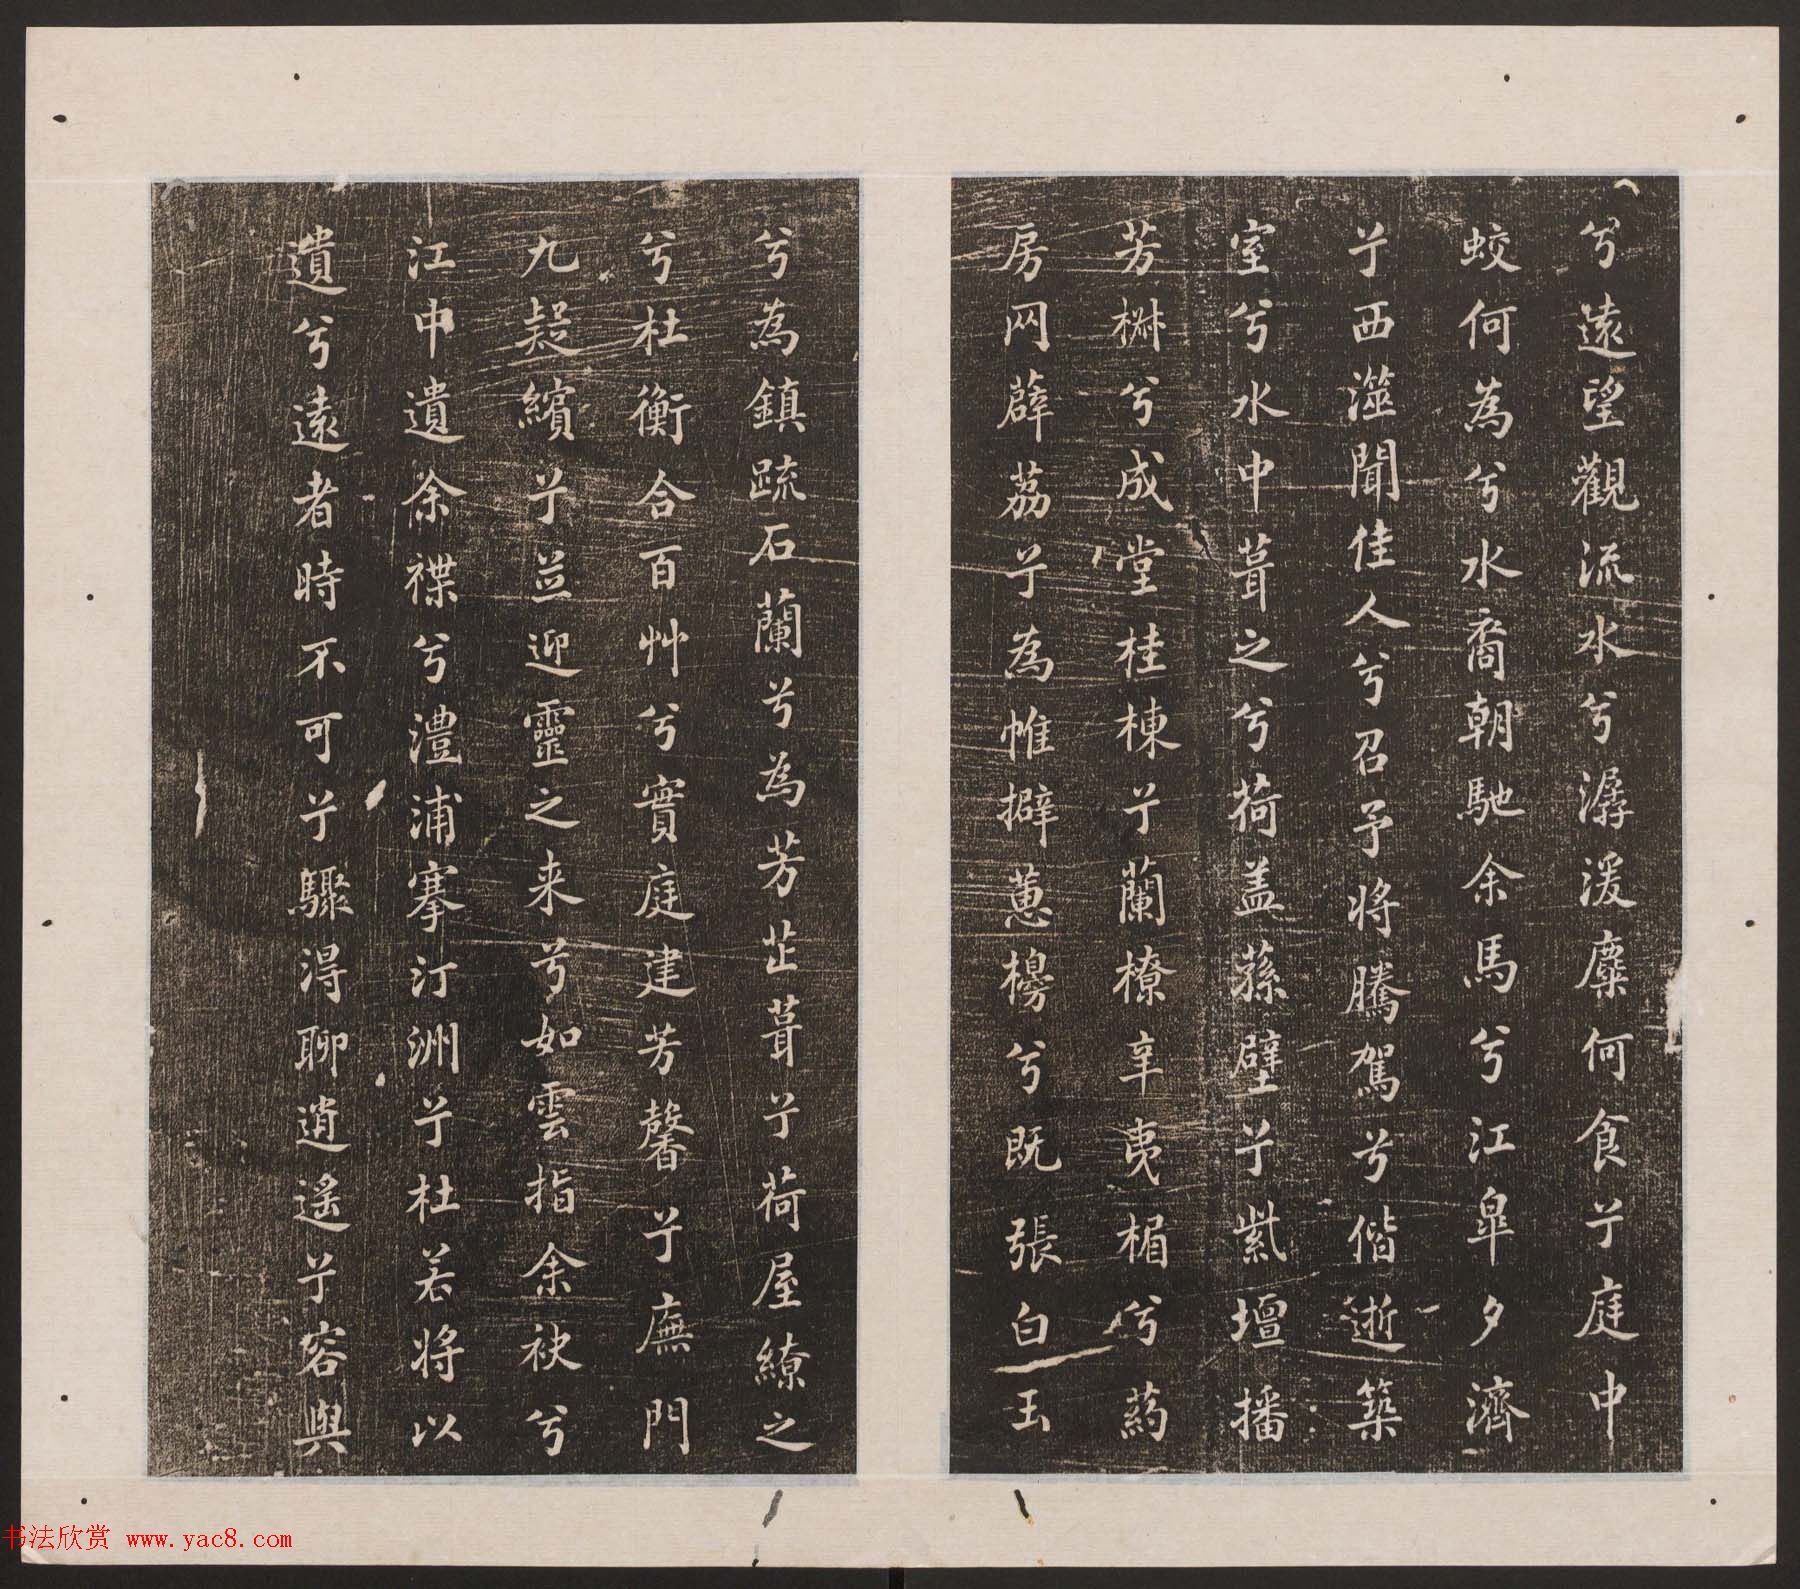 兮遠望觀流水兮潺湲麋何食兮庭中
蛟何為兮水裔朝馳余馬兮江皐夕濟
兮西澨聞佳人兮召予將騰駕兮偕逝築
室兮水中葺之兮荷盖蓀壁兮紫壇播
芳椒兮成堂桂棟兮蘭橑辛夷楣兮葯
房罔薜荔兮為帷擗蕙櫋兮既張白玉
兮為鎮疏石蘭兮為芳芷葺兮荷屋繚之
兮杜衡合百艸兮實庭建芳馨兮廡門
九疑繽兮並迎靈之来兮如雲指余袂兮
江中遺余褋兮澧浦搴汀洲兮杜若將以
遺兮遠者時不可兮驟得聊逍遙兮容與
书法欣赏 www.yac8.com